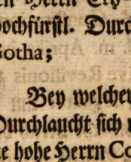 n Herrn
hochfürstl. Durc
Gotha;
Bey welcher
Durchlaucht sich
e hohe Herrn Co